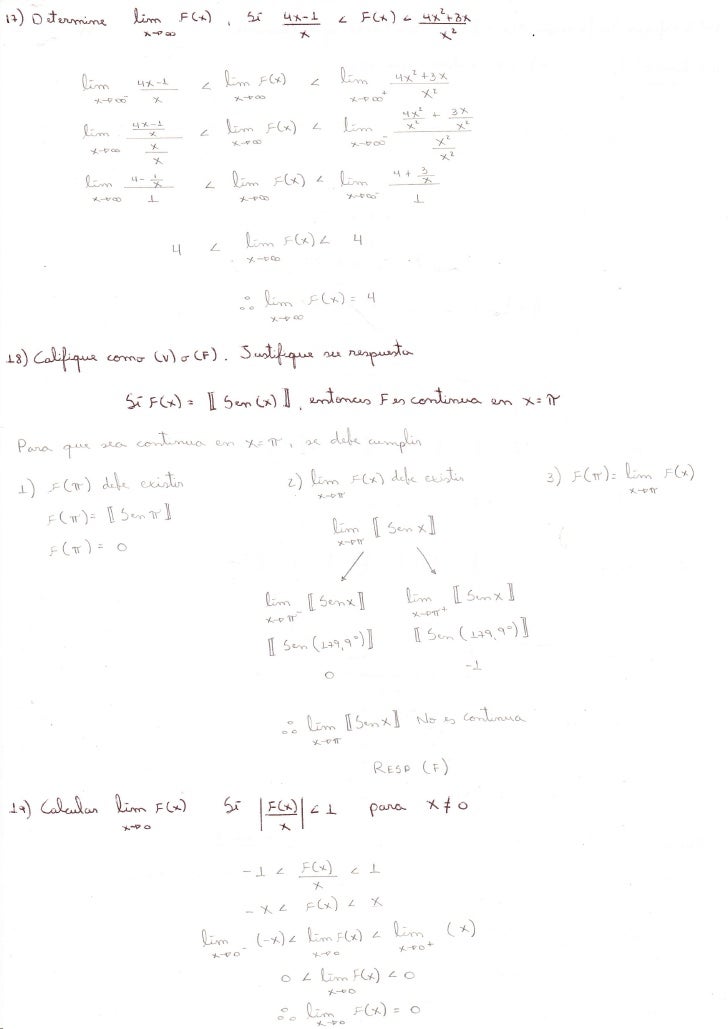 17) Determine lim x→∞ F(x), Si (4x-1)/x < F(x) < (4x²+3x)/x²
lim x→∞⁻ (4x-1)/x < lim x→∞ F(x) < lim x→∞⁺ (4x²+3x)/x²
lim x→∞ ((4x-1)/x)/(x/x) < lim x→∞ F(x) < lim x→∞⁻ (4x²/x² + 3x/x²)/(x²/x²)
lim x→∞ (4 - 1/x)/1 < lim x→∞ F(x) < lim x→∞⁻ (4 + 3/x)/1
4 < lim x→∞ F(x) < 4
∴ lim x→∞ F(x) = 4
18) Califique como (V) o (F). Justifique su respuesta
Si F(x) = ⟦Sen(x)⟧, entonces F es continua en x=π
Para que sea continua en x=π, se debe cumplir
1) F(π) debe existir 2) lim x→π F(x) debe existir 3) F(π) = lim x→π F(x)
F(π) = ⟦Sen π⟧ lim x→π ⟦Sen x⟧
F(π) = 0
lim x→π⁻ ⟦Sen x⟧ lim x→π⁺ ⟦Sen x⟧
⟦Sen(179,9°)⟧ ⟦Sen(179,9°)⟧
0 -1
∴ lim x→π ⟦Sen x⟧ No es continua
RESP (F)
19) Calcular lim x→0 F(x) Si |F(x)/x| < 1 para x ≠ 0
-1 < F(x)/x < 1
-x < F(x) < x
lim x→0⁻ (-x) < lim x→0 F(x) < lim x→0⁺ (x)
0 < lim x→0 F(x) < 0
∴ lim x→0 F(x) = 0